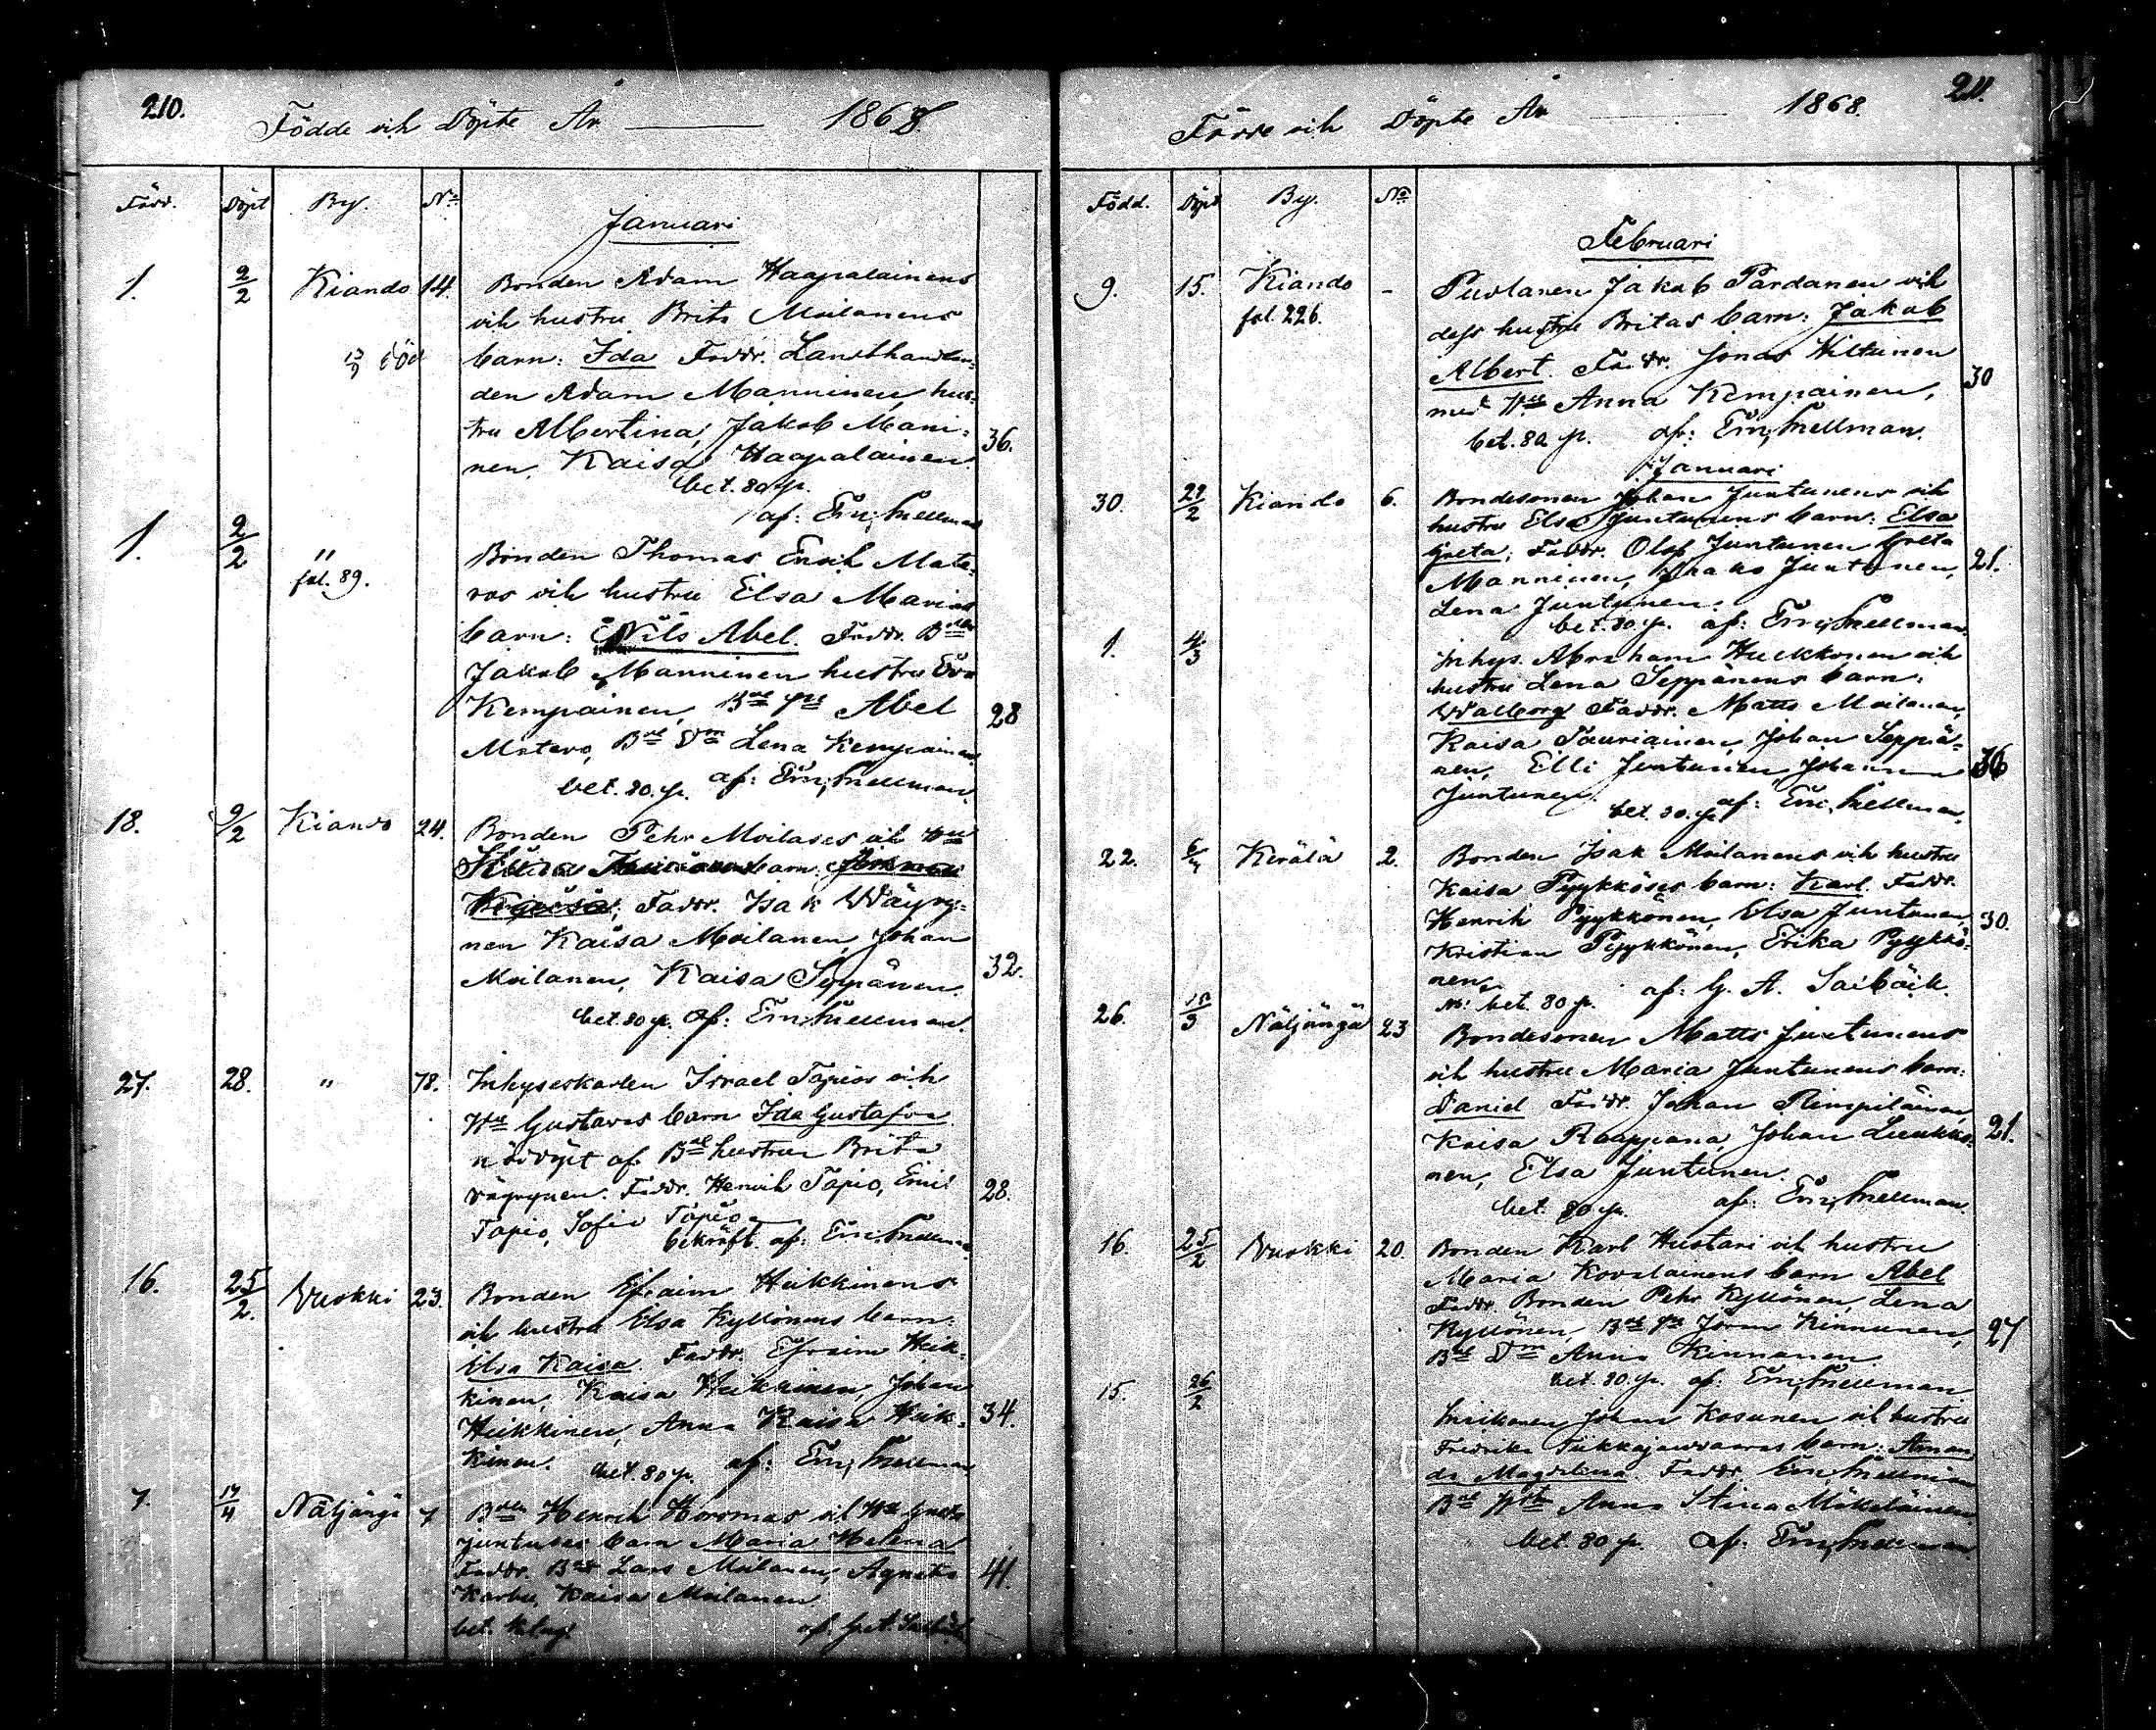 210.
Födde och Döpte År 1868
Född. Döpt By. No
Januari
1. 2/2 Kiando 14. Bonden Adam Haapalainens
och hustru Brita Moilanens
barn: Ida Faddr. Landthandlan-
den Adam Manninen, hus-
tru Albertina, Jakob Mani-
nen, Kaisa Haapalainen 36.
bet. 80 p.
af: Em. Snellman
1. 2/2 " Bonden Thomas Erich Mate-
fol. 89.
ros och hustru Elsa Marias
barn: Nils Abel. Faddr. Bden
Jakob Manninen hustru Eva
Kempainen, Abel 28
Matero, Lena Kempainen
bet. 80 p. af: Em. Snellman.
18. 9/2 Kiando 24. Bonden Pehr Moilases och
barn:
Faddr. Isak Wäyry-
nen Kaisa Moilanen, Johan
Moilanen, Kaisa Seppänen. 32.
bet. 80 p. af: Em. Snellman.
27. 28. " 78. Inhyseskarlen Israel Tapios och
Hu Gustavas barn Ida Gustafva
nöddöpt af hustru Brita
Väyrynen. Faddr. Henrik Tapio, Emil 28.
Tapio, Sofia Tapio
bekräft. af: Em. Snellman
16. 25/2. Vuokki 23. Bonden Efraim Heikkinens
och hustru Elsa Kyllönens barn:
Elsa Kaisa Faddr. Efraim Heik-
kinen, Kaisa Heikkinen, Johan
Heikkinen, Anna Kaisa Heik- 34.
kinen. bet. 80 p. af: Em. Snellman
7. 14/4 Näljängö 7 Bden Henrik Horrmas och Hu Greta
Juntuses barn Maria Helena
Faddr. Lars Moilanen, Agneta 41.
Karbu, Kaisa Moilanen
bet.
211.
Födde och Döpte År 1868.
Född. Döpt By. No
Februari
9. 15. Kiando - Jakob Pardanen och
fol. 226.
dess hustru Britas barn: Jakob
Albert. Faddr. Jonas Kiltunen
med Hu Anna Kempainen, 30
bet. 80 p. af: Em. Snellman.
Januari
30. 29/2 Kiando 6. Bondesonen Johan Juntunens och
hustru Elsa Juntunens barn: Elsa
Greta; Faddr. Olof Juntunen Greta
Manninen, Juntunen, 21.
Lena Juntunen.
bet. 80 p. af: Em. Snellman.
1. 4/3 Inhys. Abraham Huckkonen och
hustru Lena Seppänens barn:
Walborg Faddr. Matts Moilanen,
Kaisa Tauriainen, Johan Seppä-
nen, Elli Juntunen, Johann 36
Juntunen. bet. 80 p. af: Em. Snellman.
22. Kerälä 2. Bonden Isak Moilanens och hustru
Kaisa Pyykköses barn: Karl. Faddr.
Henrik Pyykkönen, Elsa Juntunen, 30.
Kristian Pyykkönen, Erika Pyykkö-
nen.
bet. 80 p. af: G. A. Saibäck.
26. Näljängä 23 Bondesonen Matts Juntunens
och hustru Maria Juntunens barn:
Daniel Faddr. Johan Rimpiläinen
Kaisa Raappana, Johan Luukko- 21.
nen, Elsa Juntunen.
bet. 80 p. af: Em. Snellman.
16. 25/2 Vuokki 20. Bonden Karl Hustari och hustru
Maria Kovalainens barn Abel
Faddr. Bonden Pehr Kyllönen, Lena
Kyllönen, Kinnunen, 27
Anna Kinnunen.
bet. 80 p. af: Em. Snellman
15. 26/2 Johan Kosunen och hustru
Fredrika barn: Aman-
da Magdalena Faddr. Em. Snellman
Anna Stina Mäkeläinen.
bet. 80 p. af: Em. Snellman.